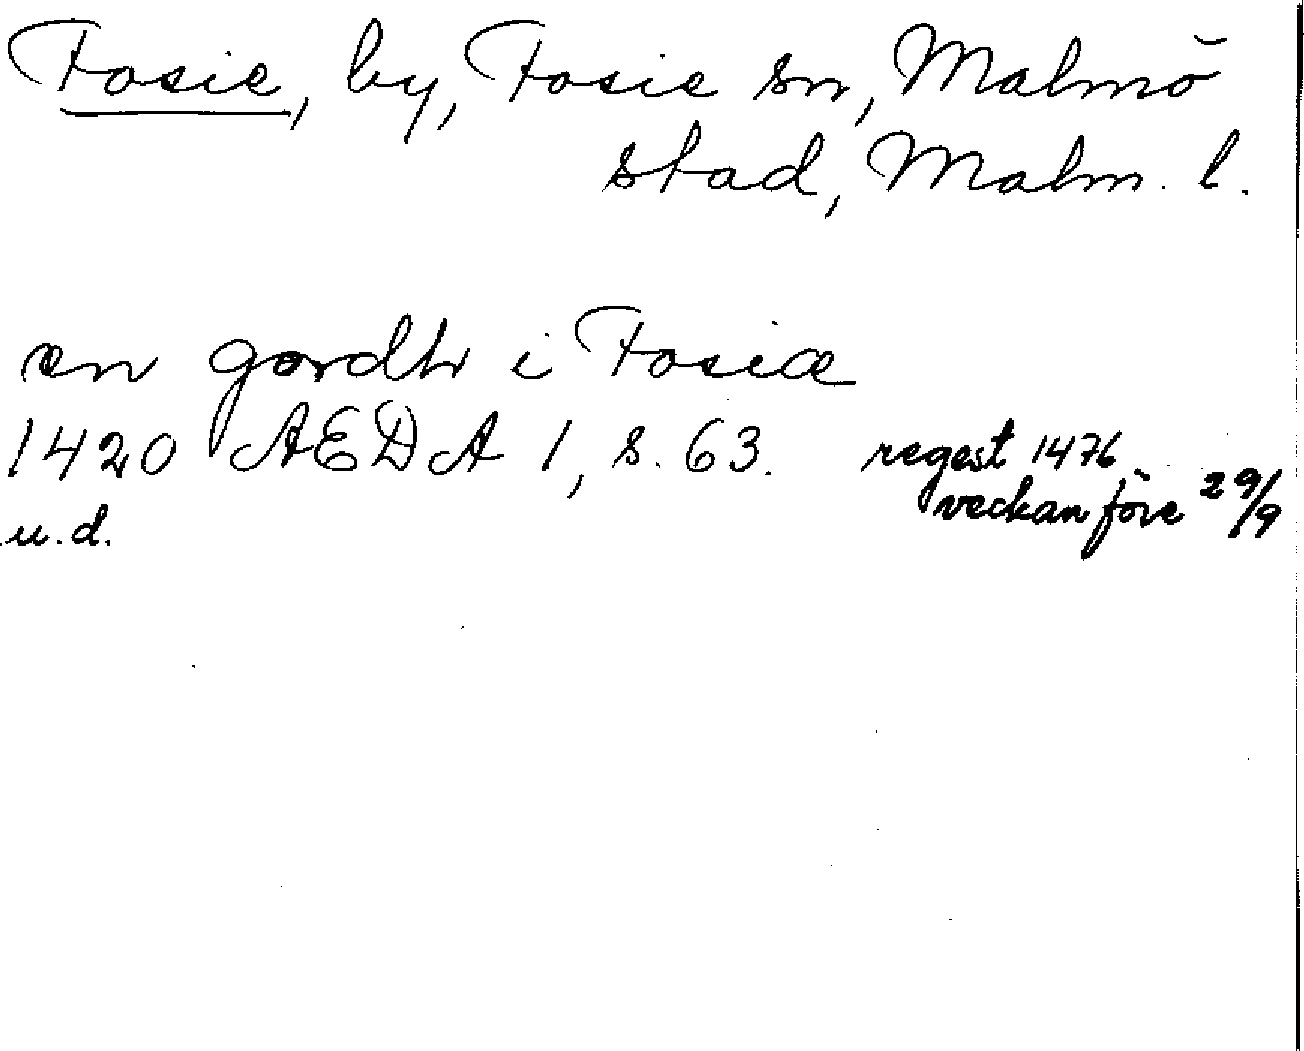 Fosie, by, Fosie sn, Malmö
stad, Malm. l.
en gordh i Fosiæ
1420 AEDA 1, s. 63. regest 1476
veckan före 29/9
u.d.